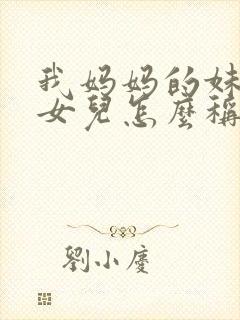 我妈妈的妹
女兒怎麼稱
劉小慶